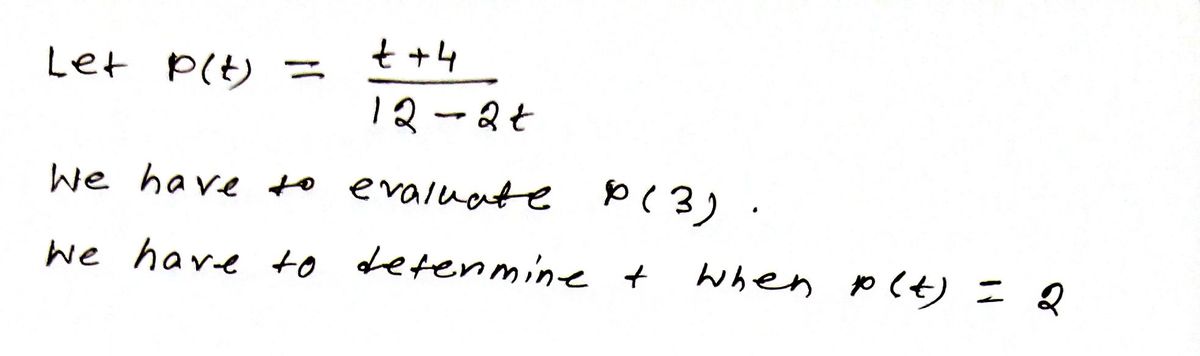 Let p(t) = t+4
12-2t
We have to evaluate p(3).
We have to determine t when p(t) = 2